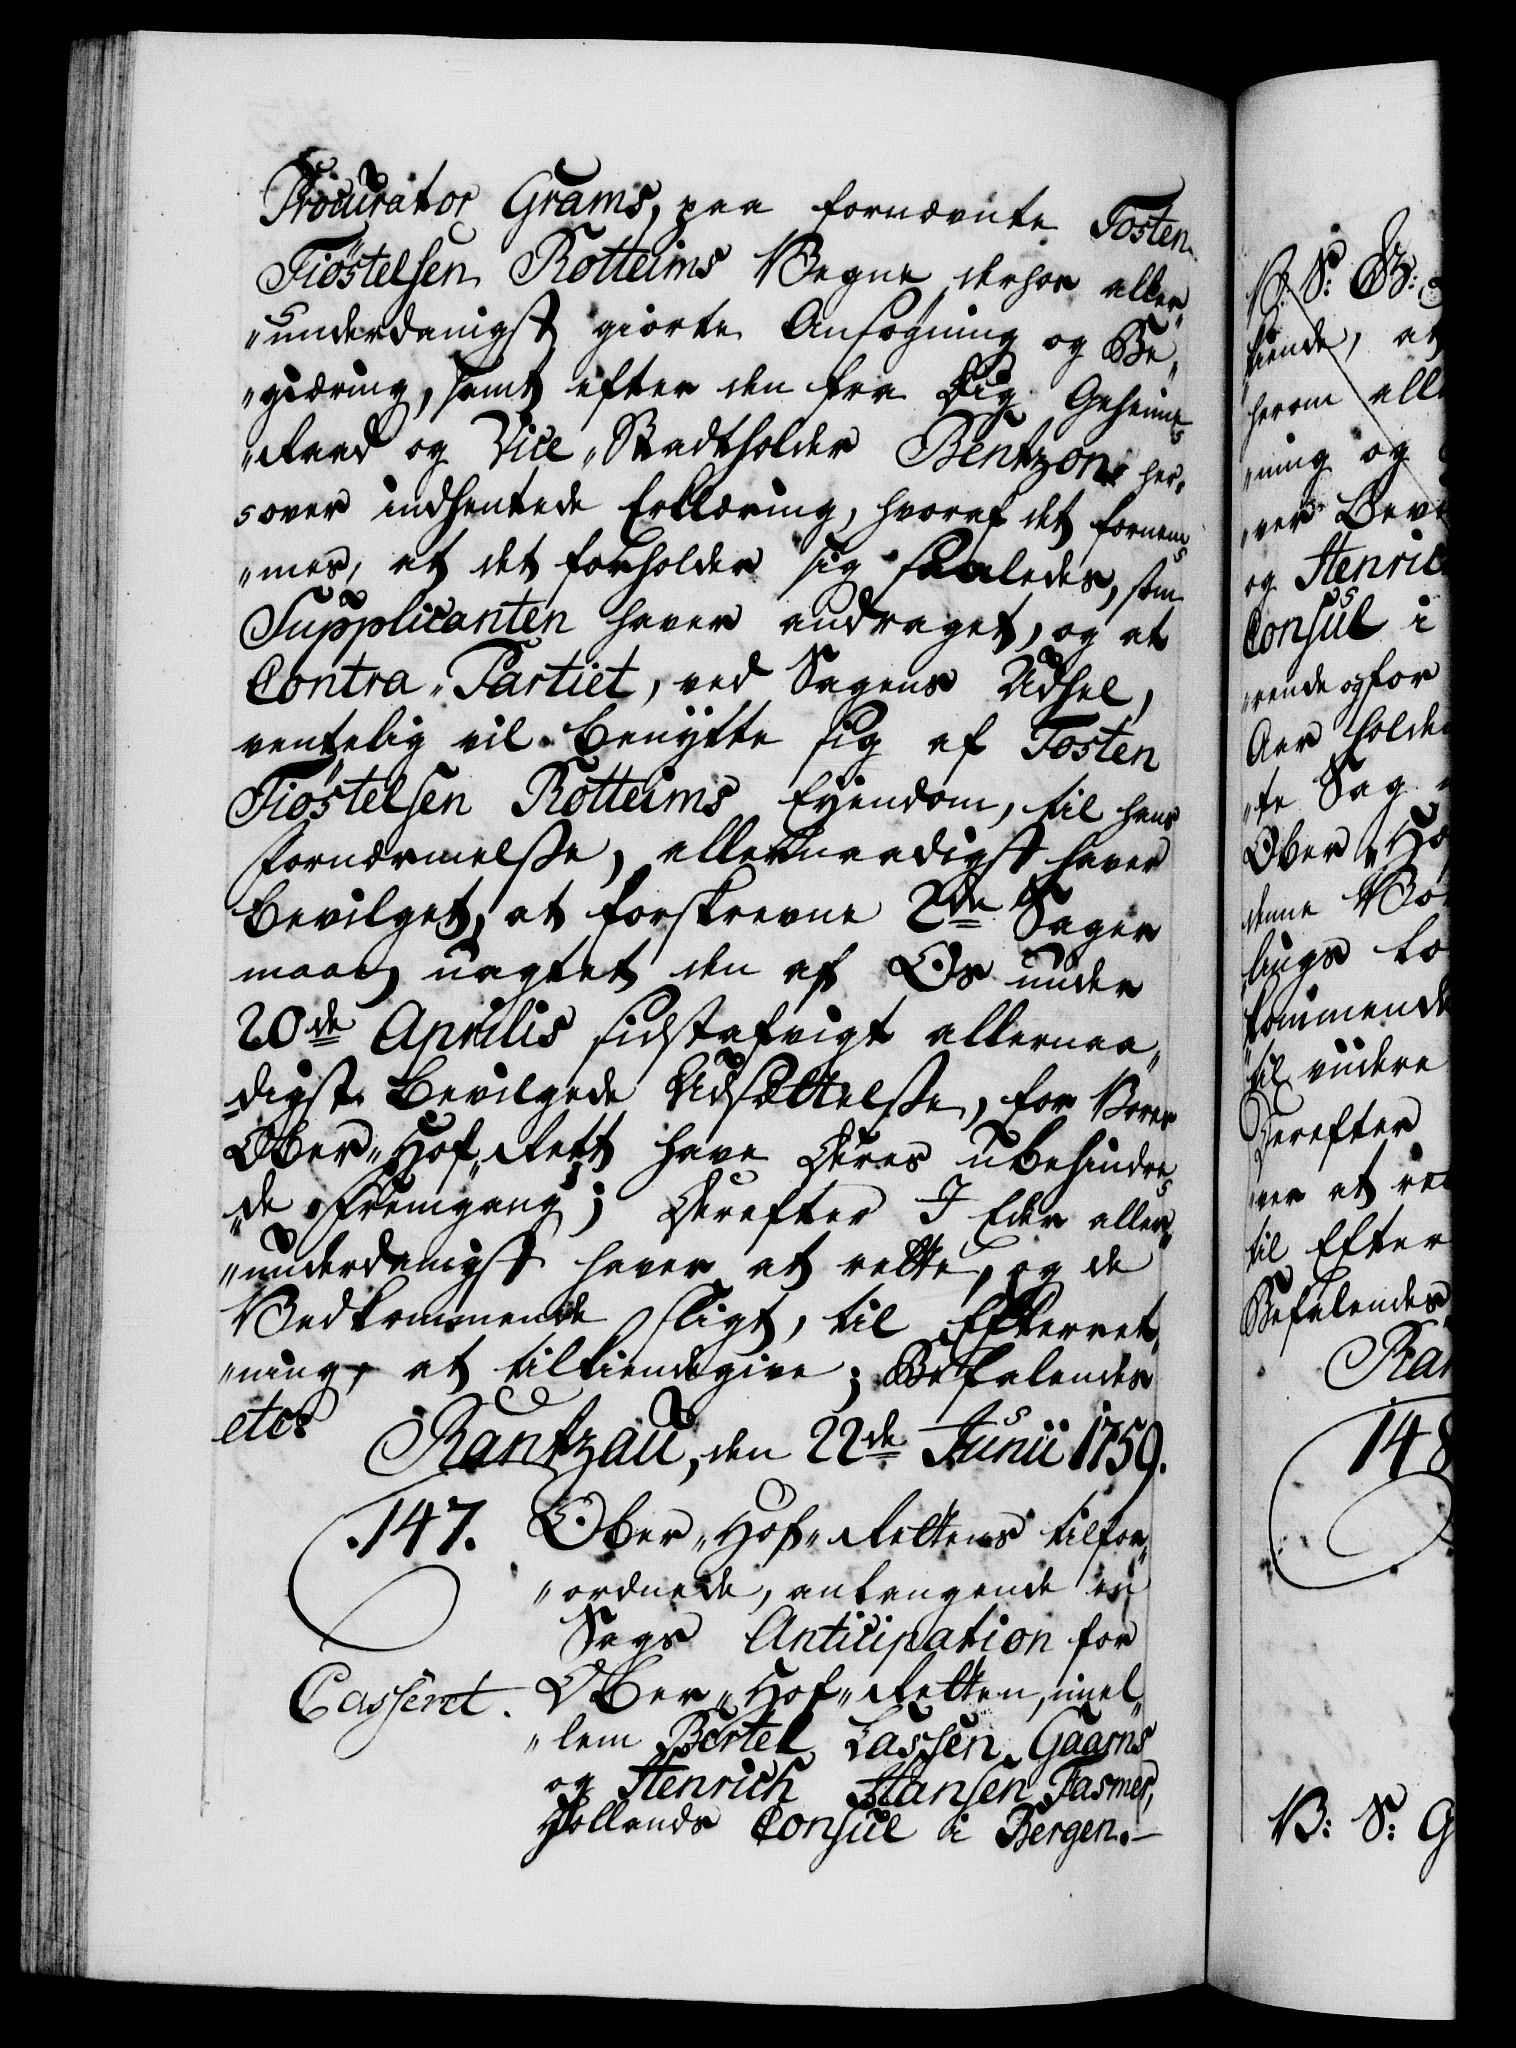 Procurator Grams, paa fornævnte Tosten
Tiøstelsen Rotteims Vegne derhos aller„
„underdanigst giorte Ansøgning og Be„
„giæring, samt efter den fra Dig Geheime„
„Raad og Vice„Stadtholder Bentzon her„
„over indhentede Erklæring, hvoraf det fornem„
„mes, at det forholder sig saaledes, som
Supplicanten haver andraget, og at
Contra„Partiet, ved Sagens Udhal,
ventelig vil benytte sig af Tosten
Tiøstelsen Rotteims Eyendom, til hans
Fornærmelse, allernaadigst haver
bevilget, at forskrevne 2de Sager
maae, uagtet den af Os under
20de Aprilis sidstafvigt allernaa„
„digst bevilgede Udsættelse, for Vores
Ober„Hof„Rett have Deres ubehindre„
„de Fremgang; Derefter I Eder aller„
„underdanigst haver at rette, og de
Vedkommende sligt, til Efterret„
„ning, at tilkiendegive; Befalendes
etc:
Rantzau, den 22de Junii 1759.
147. Ober„Hof„Rettens tilfor„
„ordnede, anlangende en
Sags Anticipation for
Casseret. Ober„Hof„Retten, imel„
„lem Bertel Lassen Gaarns
og Henrich Hansen Fasmer,
Hollands Consul i Bergen.
V: S: G:
kiende, at
herom all
„ning og
„ver Bev
og Henric
Consul i
„rende og for
Aar holde
„te Sag
Ober„Ho
denne Vo
lings lo
kommende
til videre
Derefter
„ver at re
til Efter
Befalendes
Ran
148
V: S: G